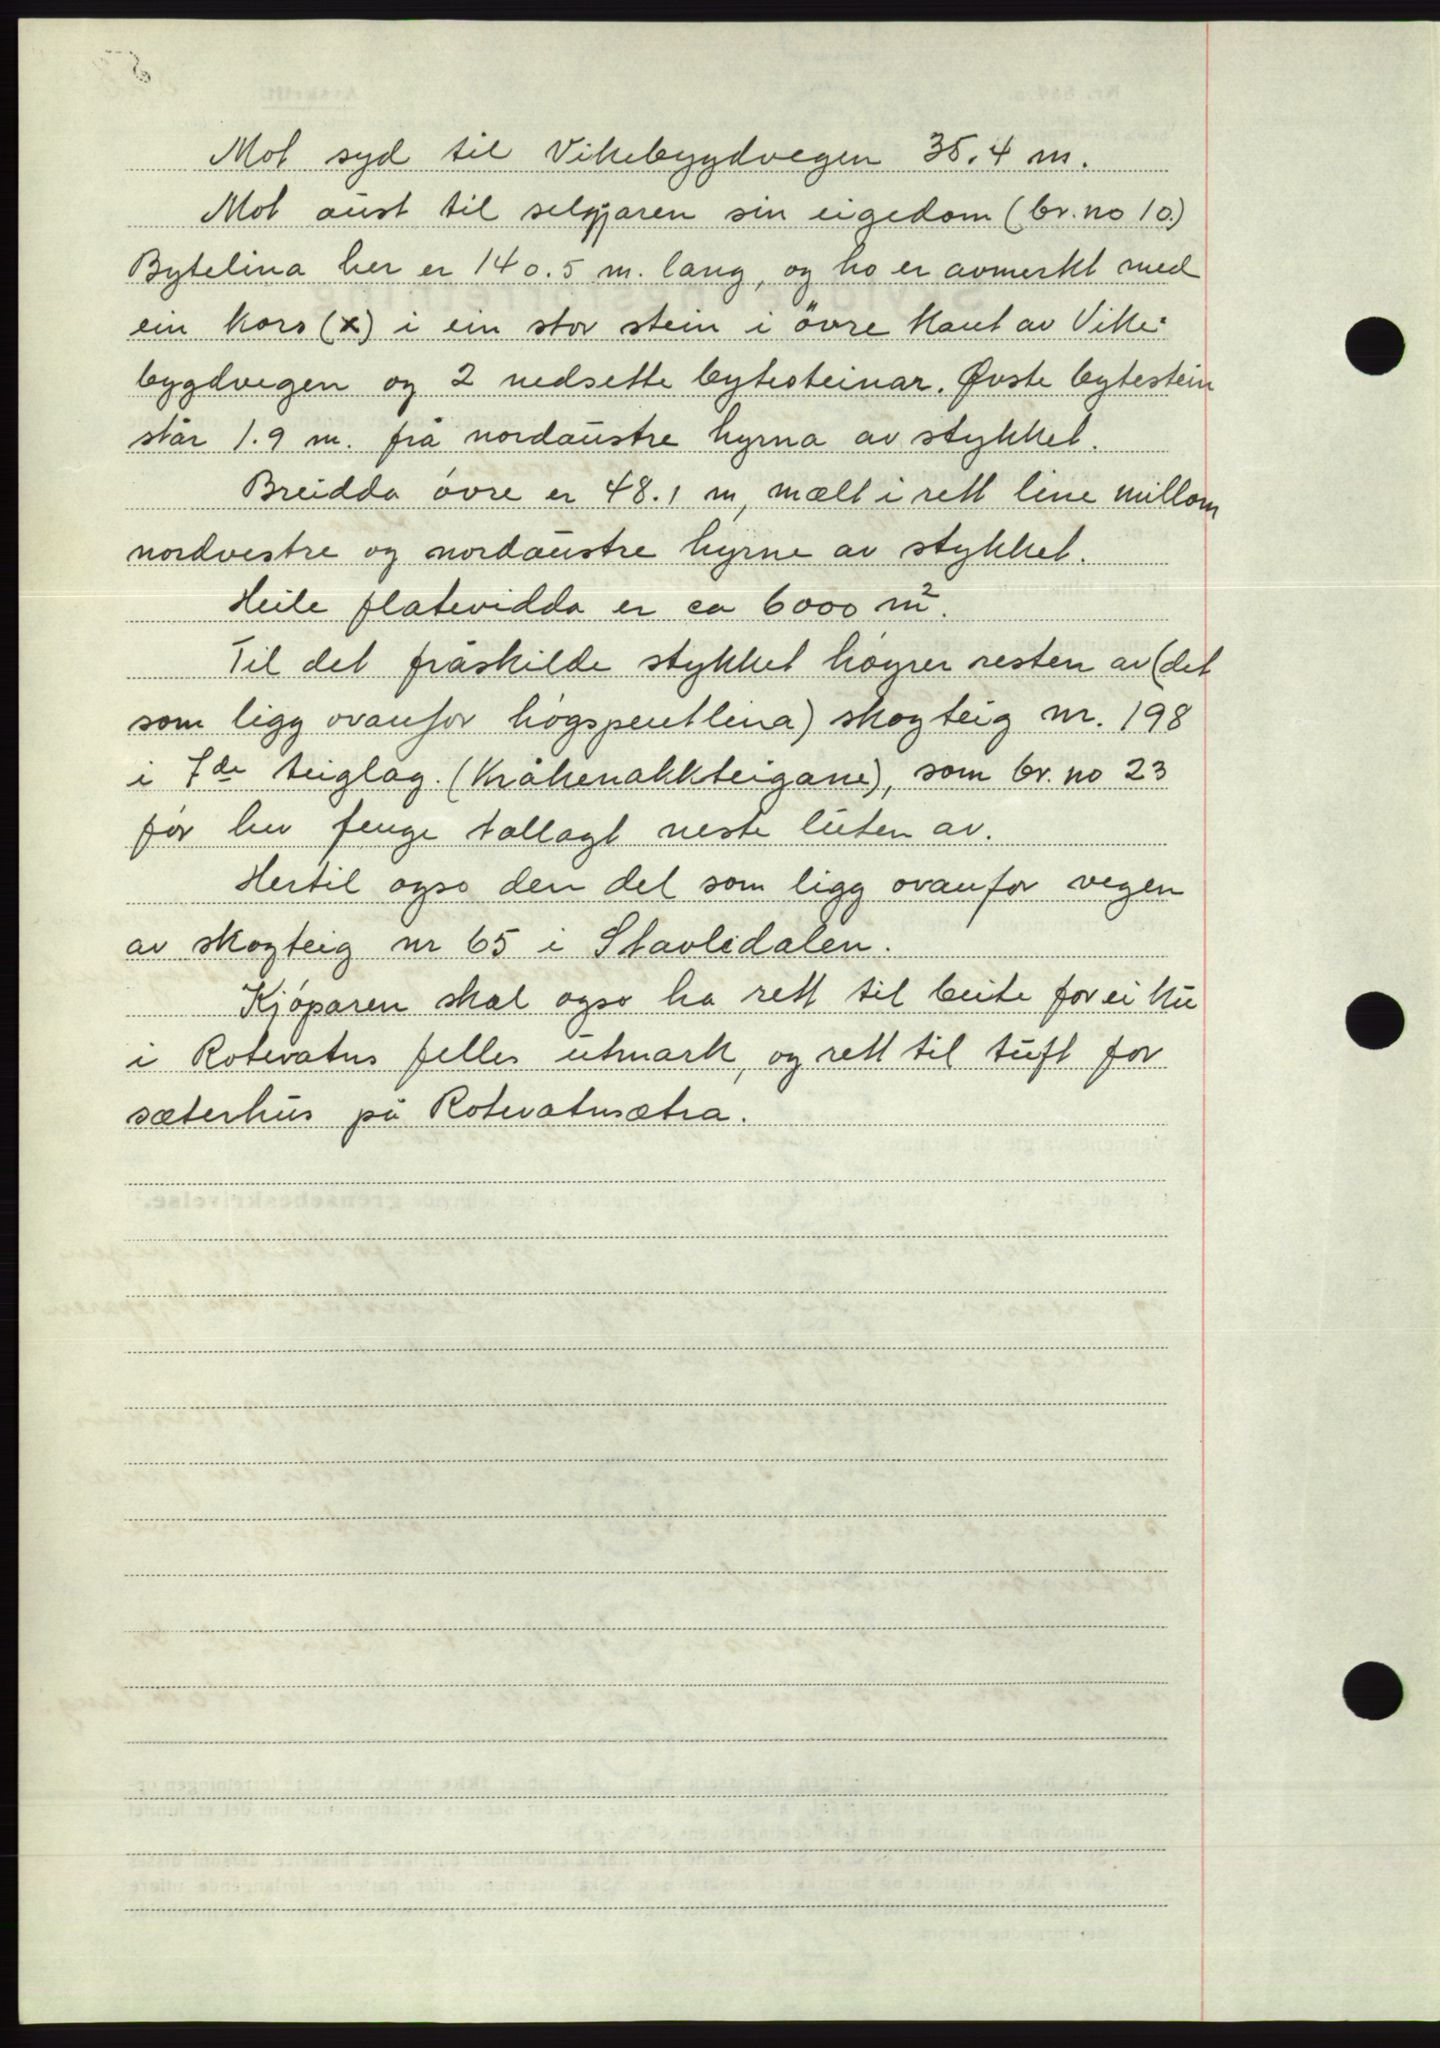 Mot syd til Vikebygdvegen 35.4 m.
Mot aust til seljaren sin eigedom (br. no 10.)
Bytelina her er 140.5 m. lang, og ho er avmerkt med
ein kors (x) i ein stor stein i övre kant av Vike-
bygdvegen og 2 nedsette bytesteinar. Øvste bytestein
står 1.9 m. frå nordaustre hyrna av stykket.
Breidda övre er 48.1 m, mælt i rett line millom
nordvestre og nordaustre hyrne av stykket.
Heile flatevidda er ca 6000 m².
Til det fråskilde stykket höyrer resten av (det
som ligg ovanfor högspentlina) skogteig nr. 198
i 7de teiglag. (Kråkenakkteigane), som br. no 23
för hev fenge tillagt neste luten av.
Hertil ogso den del som ligg ovanfor vegen
av skogteig nr 65 i Stavlidalen.
Kjöparen skal ogso ha rett til beite for ei ku
i Rotevatns felles utmark, og rett til tuft for
sæterhus på Rotevatnsætra.